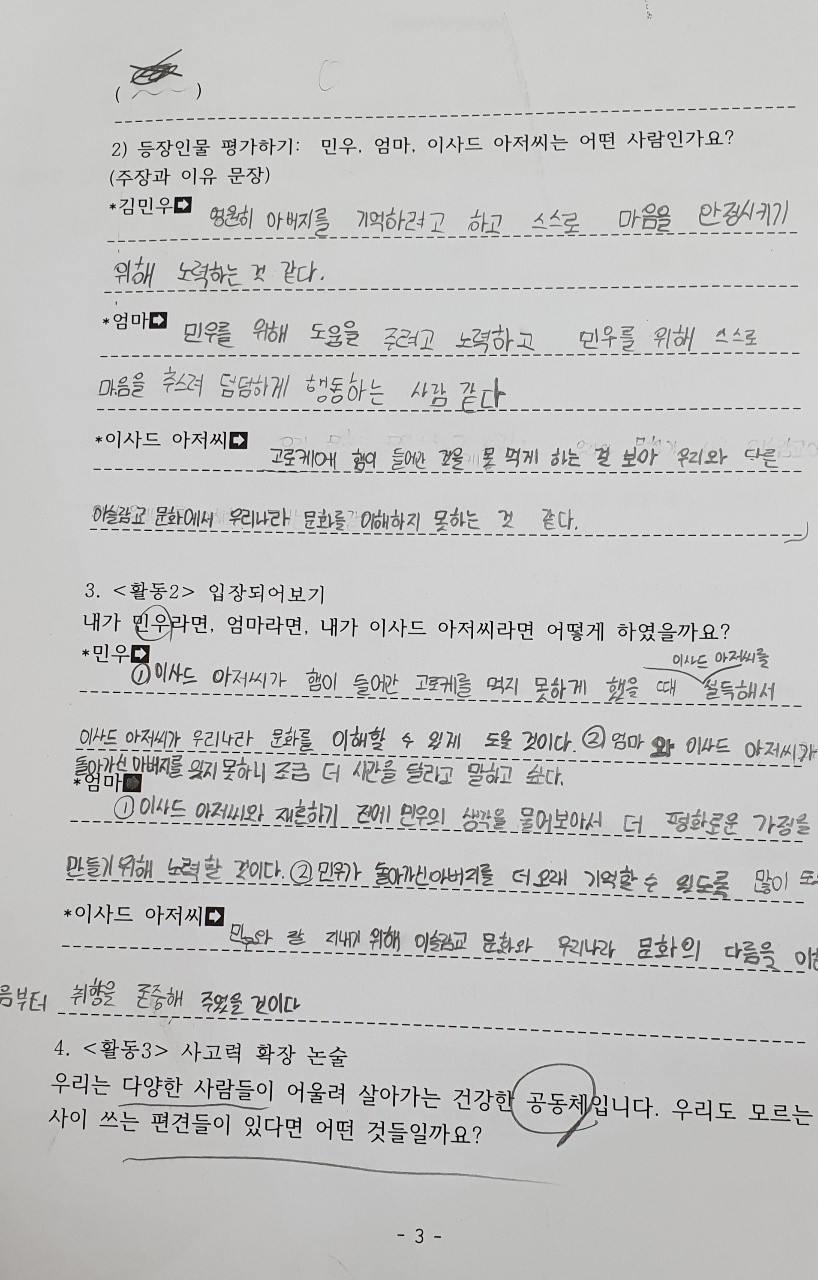 ( )
2) 등장인물 평가하기: 민우, 엄마, 이사드 아저씨는 어떤 사람인가요?
(주장과 이유 문장)
*김민우➡ 영원히 아버지를 기억하려고 하고 스스로 마음을 안정시키기
위해 노력하는 것 같다.
*엄마➡ 민우를 위해 도움을 주려고 노력하고 민우를 위해 스스로
마음을 추스려 덤덤하게 행동하는 사람 같다
*이사드 아저씨➡ 고로케에 햄이 들어간 것을 못 먹게 하는 걸 보아 우리와 다른
이슬람교 문화에서 우리나라 문화를 이해하지 못하는 것 같다.
3. <활동2> 입장되어보기
내가 민우라면, 엄마라면, 내가 이사드 아저씨라면 어떻게 하였을까요?
이사드 아저씨를
*민우➡ ①이사드 아저씨가 햄이 들어간 고로케를 먹지 못하게 했을 때 설득해서
이사드 아저씨가 우리나라 문화를 이해할 수 있게 도울 것이다. ②엄마와 이사드 아저씨가
돌아가신 아버지를 잊지 못하니 조금 더 시간을 달라고 말하고 싶다.
*엄마➡ ①이사드 아저씨와 재혼하기 전에 민우의 생각을 물어보아서 더 평화로운 가정을
만들기 위해 노력할 것이다. ②민우가 돌아가신 아버지를 더 오래 기억할 수 있도록 많이
*이사드 아저씨➡ 민우와 잘 지내기 위해 이슬람교 문화와 우리나라 문화의 다름을
음부터 취향을 존중해 주었을 것이다
4. <활동3> 사고력 확장 논술
우리는 다양한 사람들이 어울려 살아가는 건강한 공동체입니다. 우리도 모르는
사이 쓰는 편견들이 있다면 어떤 것들일까요?
- 3 -